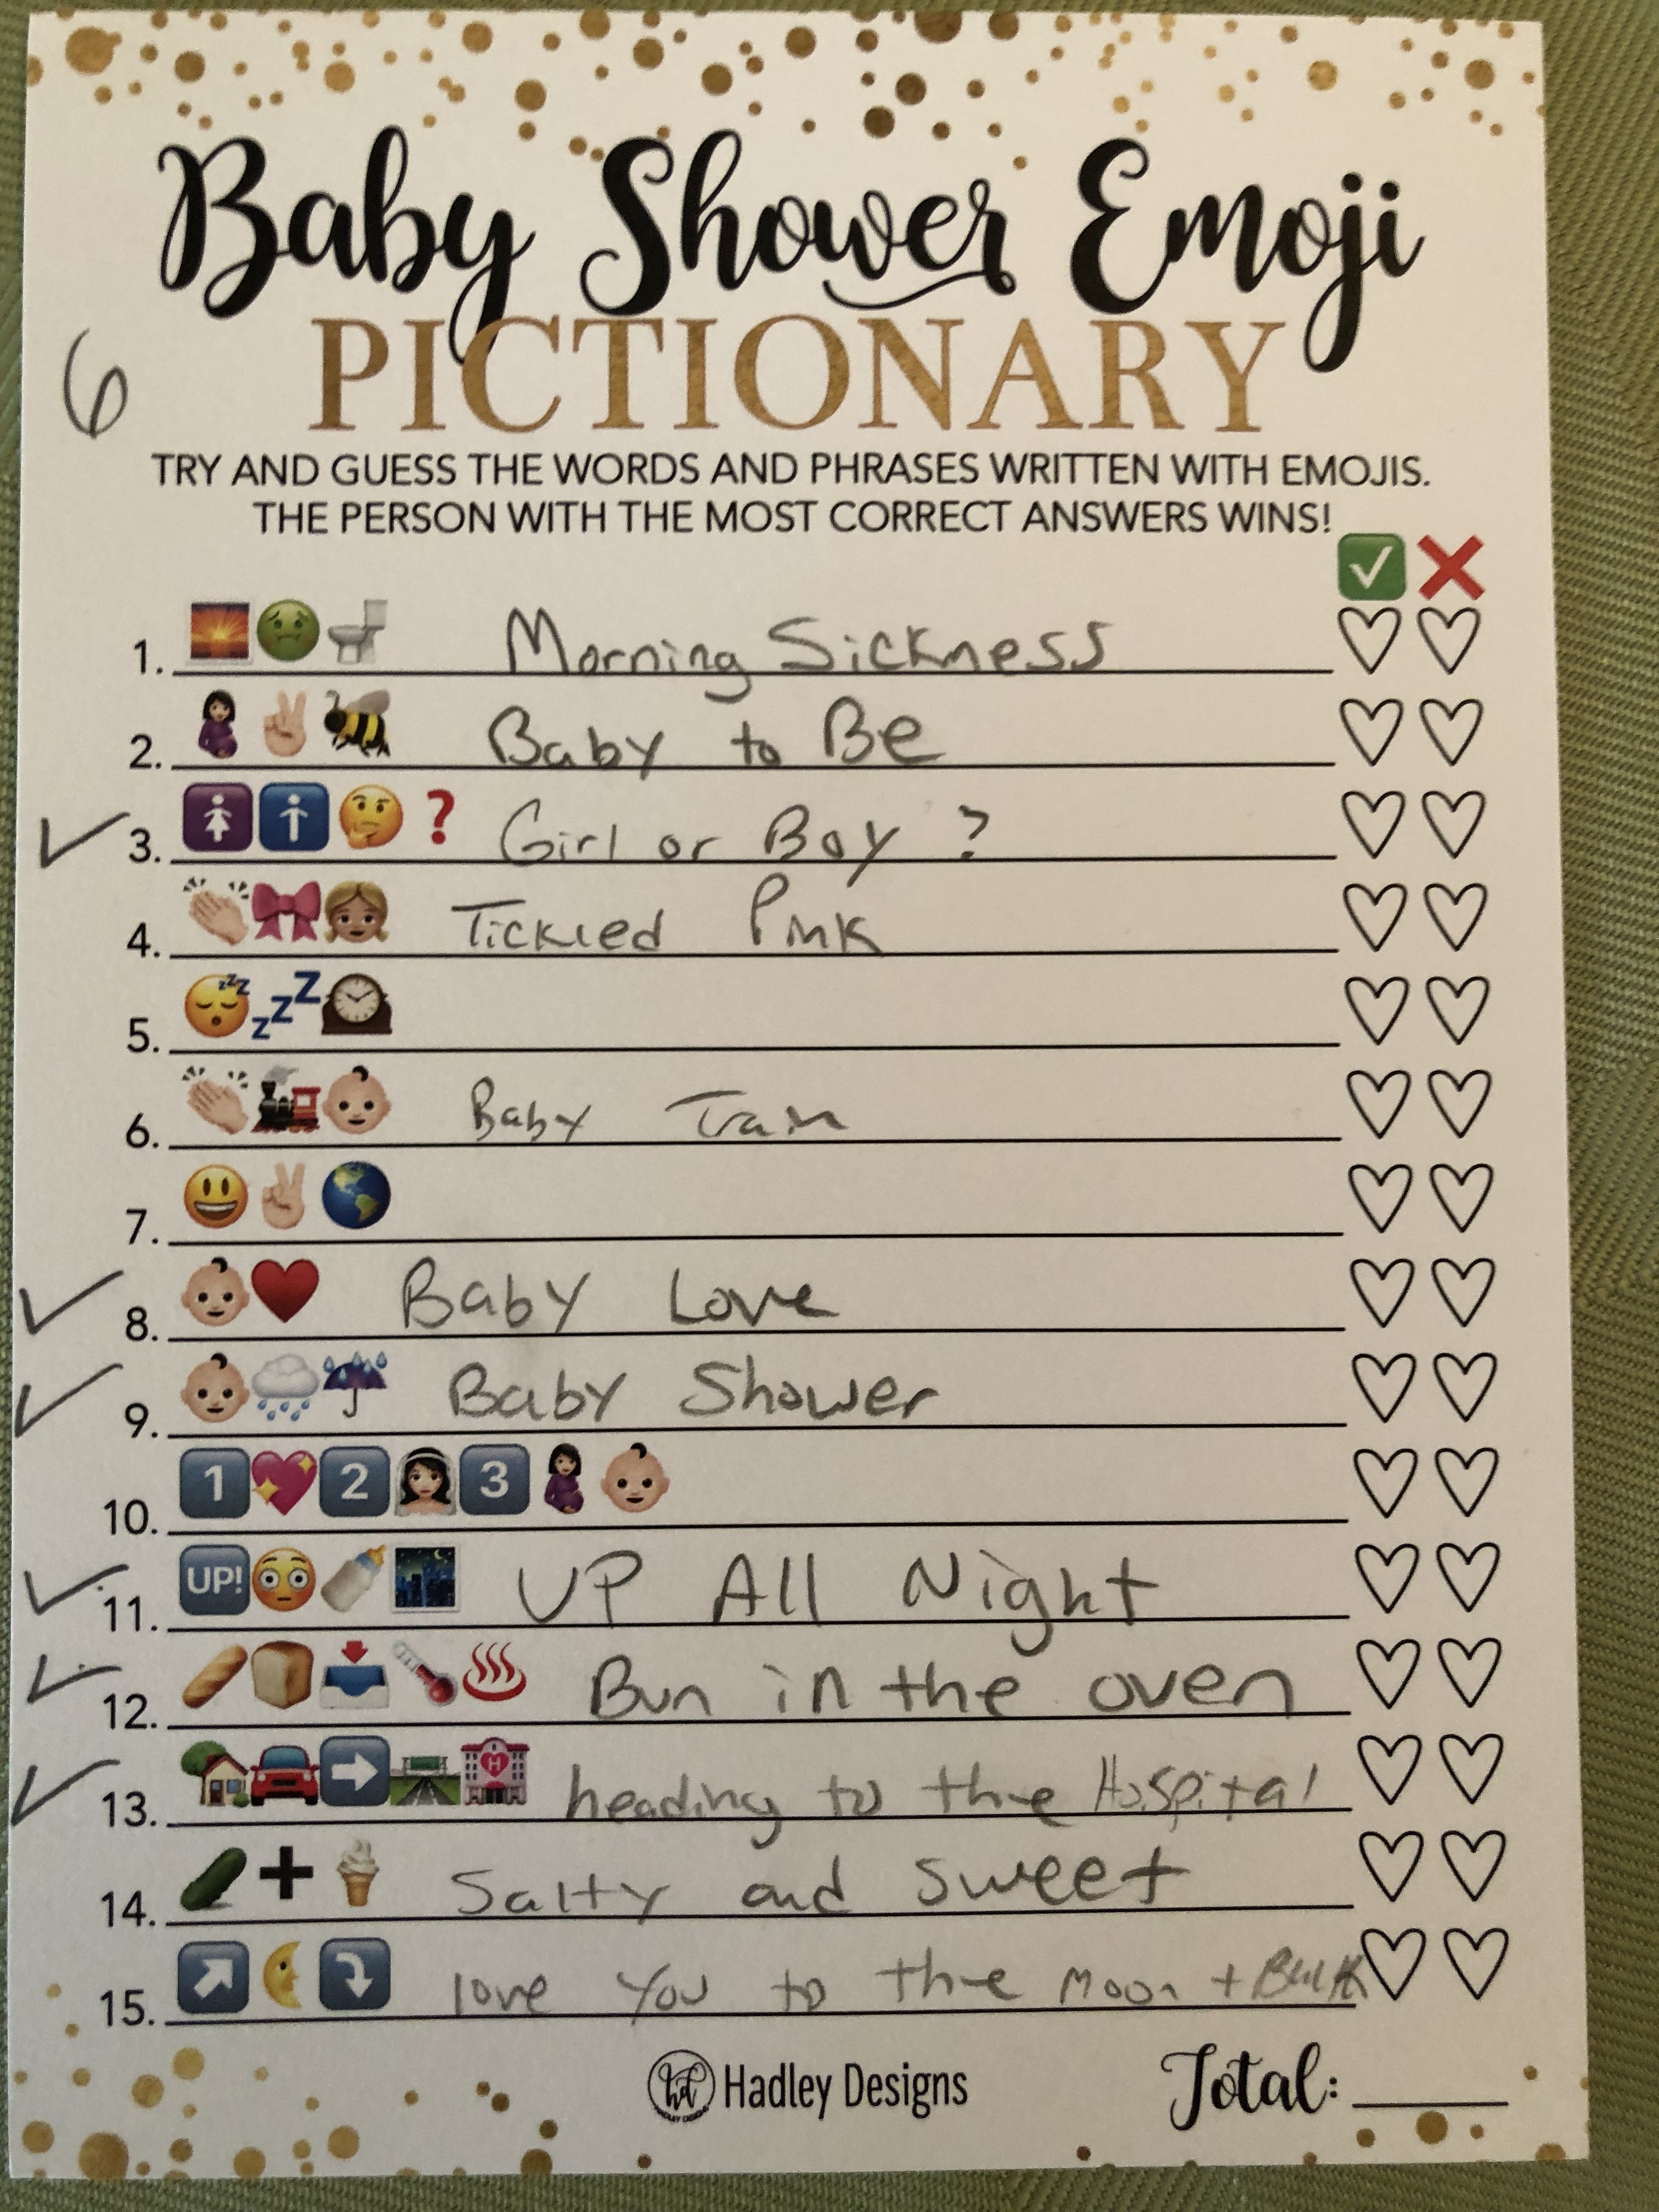 Baby Shower Emoji
PICTIONARY
6
TRY AND GUESS THE WORDS AND PHRASES WRITTEN WITH EMOJIS.
THE PERSON WITH THE MOST CORRECT ANSWERS WINS!
1. Morning Sickness
2. Baby to Be
3. ? Girl or Boy ?
4. Tickled Pink
5. zZZ
6. Baby Train
7.
8. Baby Love
9. Baby Shower
10. 1 2 3
11. UP! UP All Night
12. Bun in the oven
13. H heading to the Hospital
14. + Salty and Sweet
15. love You to the Moon +
hd Hadley Designs Total: